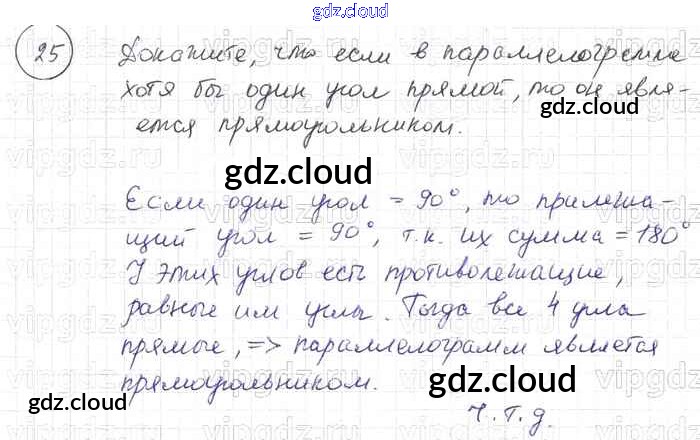 gdz.cloud
25 Докажите, что если в параллелограмме
хотя бы один угол прямой, то он явля-
ется прямоугольником.
gdz.cloud
gdz.cloud
Если один угол = 90°, то прилежа-
щий угол = 90°, т.к. их сумма = 180°
У этих углов есть противолежащие,
равные им углы. Тогда все 4 угла
прямые, => параллелограмм является
прямоугольником.
gdz.cloud
gdz.cloud
ч.т.д.